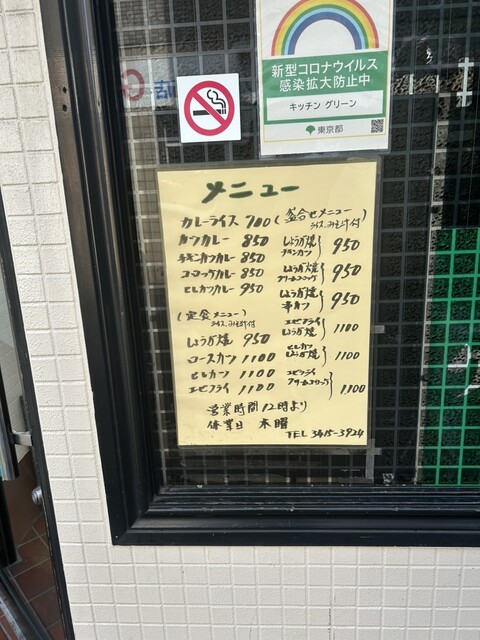 新型コロナウイルス
感染拡大防止中
キッチン グリーン
東京都
メニュー
カレーライス 700
カツカレー 850
チキンカツカレー 850
コロッケカレー 850
ヒレカツカレー 950
(定食メニュー)
ライス、みそ汁付
しょうが焼 950
ロースカツ 1100
ヒレカツ 1100
エビフライ 1100
(盛合せメニュー)
ライス、みそ汁付
しょうが焼
チキンカツ
950
しょうが焼
クリームコロッケ
950
しょうが焼
串カツ
950
エビフライ
しょうが焼
1100
ヒレカツ
しょうが焼
1100
エビフライ
クリームコロッケ
1100
営業時間 12時より
休業日 木曜
TEL 3415-3924